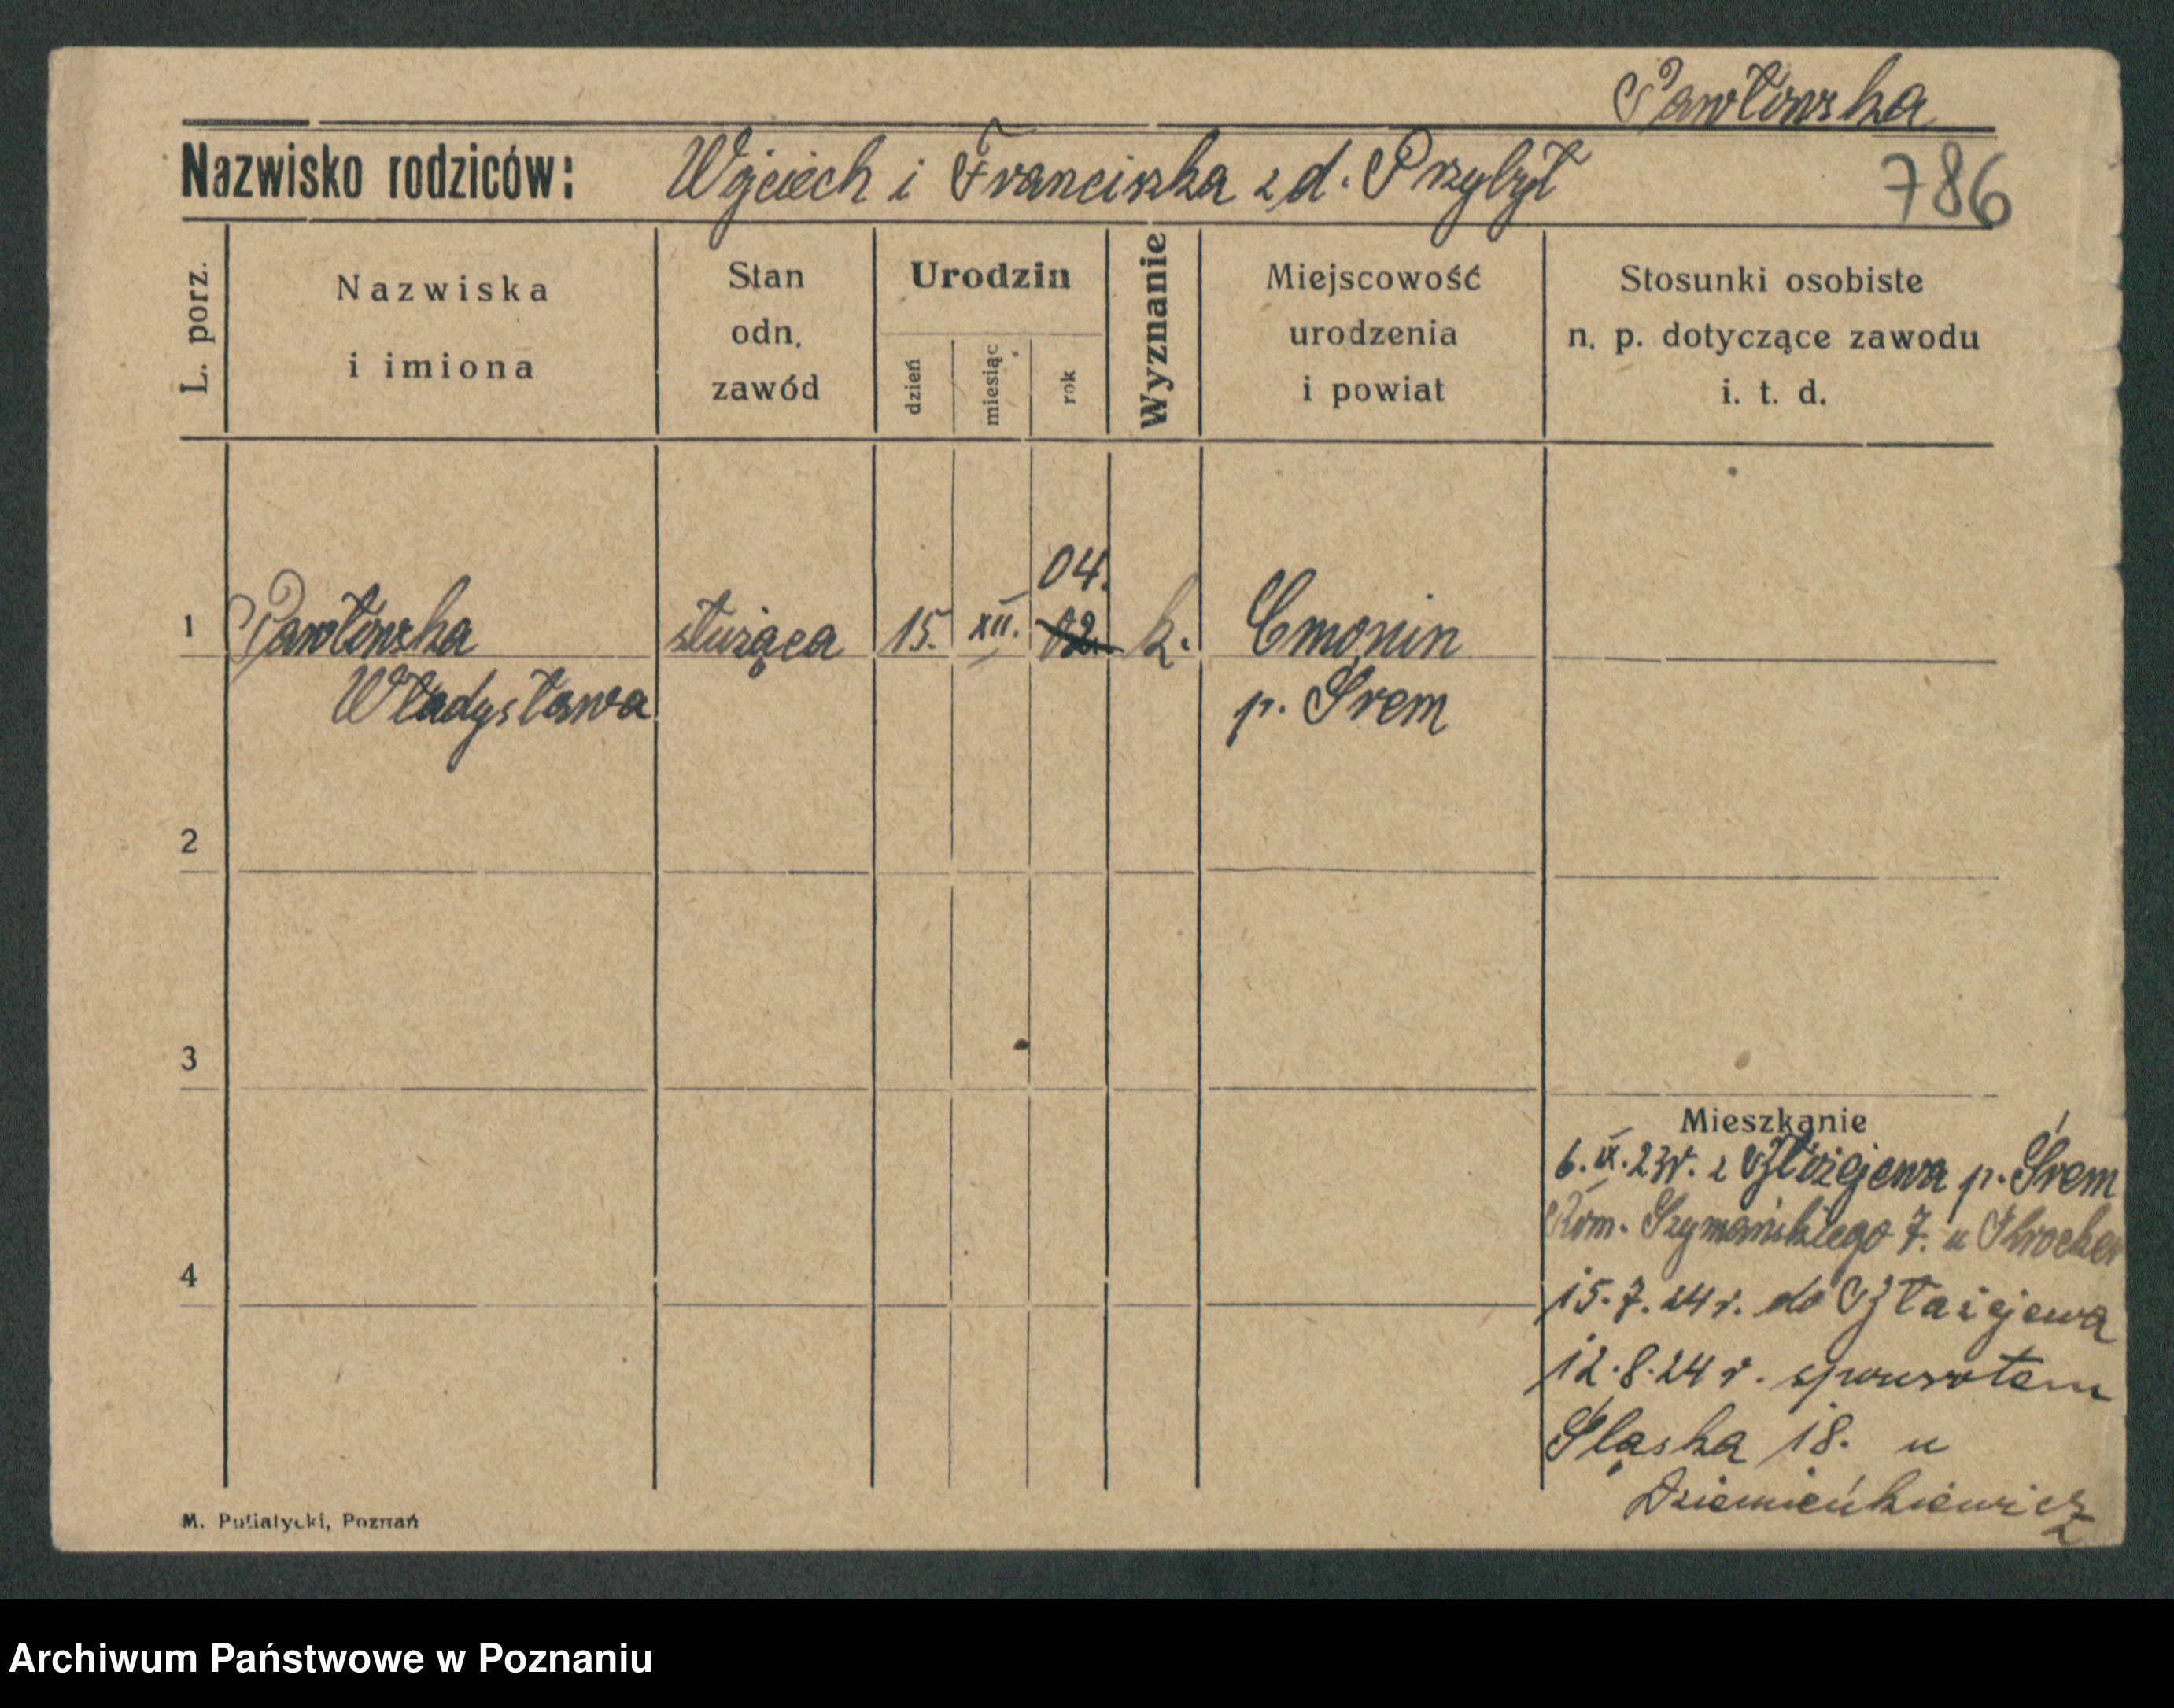 Pawłowska
Nazwisko rodziców: Wojciech i Franciszka z d. Przybył
786
L. porz.
Nazwiska i imiona
Stan odn. zawód
Urodzin
dzień miesiąc rok
Wyznanie
Miejscowość urodzenia i powiat
Stosunki osobiste n. p. dotyczące zawodu i. t. d.
04.
1 Pawłowska służąca 15. XII. 02. k. Cmonin
Władysława p. Śrem
2
3
4
Mieszkanie
6. IX. 23r. z p. Śrem
Rom. Szymańskiego 7. u
15.7.24 r. do
12.8.24 r. spowrotem
Śląska 18. u
Dziemieńkiewicz
M. Putiatycki, Poznań
Archiwum Państwowe w Poznaniu